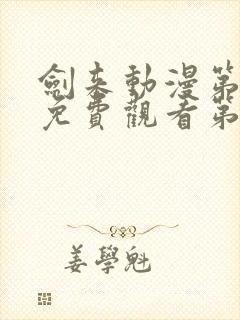 劍來動漫第
免費觀看第
姜學魁